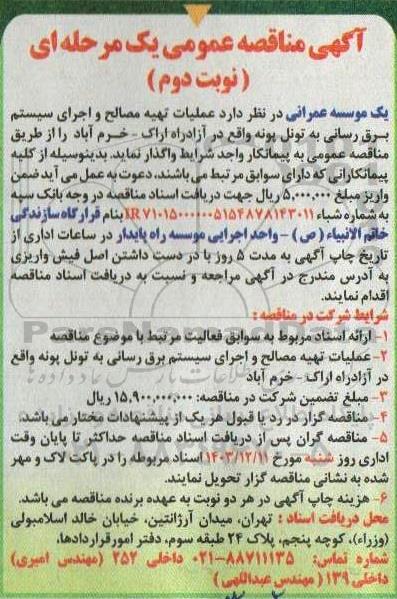 آگهی مناقصه عمومی یک مرحله ای
( نوبت دوم )
یک موسسه عمرانی در نظر دارد عملیات تهیه مصالح و اجرای سیستم
برق رسانی به تونل پونه واقع در آزادراه اراک - خرم آباد را از طریق
مناقصه عمومی به پیمانکار واجد شرایط واگذار نماید. بدینوسیله از کلیه
پیمانکارانی که دارای سوابق مرتبط می باشند، دعوت به عمل می آید ضمن
واریز مبلغ ۵,۰۰۰,۰۰۰ ریال جهت دریافت اسناد مناقصه در وجه بانک سپه
به شماره شباء بنام قرارگاه سازندگی
خاتم الانبیاء ( ص ) - واحد اجرایی موسسه راه پایدار در ساعات اداری از
تاریخ چاپ آگهی به مدت ۵ روز با در دست داشتن اصل فیش واریزی
به آدرس مندرج در آگهی مراجعه و نسبت به دریافت اسناد مناقصه
اقدام نمایند.
شرایط شرکت در مناقصه :
۱- ارائه اسناد مربوط به سوابق فعالیت مرتبط با موضوع مناقصه
۲- عملیات تهیه مصالح و اجرای سیستم برق رسانی به تونل پونه واقع
در آزادراه اراک - خرم آباد
۳- مبلغ تضمین شرکت در مناقصه: ۱۵,۹۰۰,۰۰۰,۰۰۰ ریال
۴- مناقصه گزار در رد یا قبول هر یک از پیشنهادات مختار می باشد.
۵- مناقصه گران پس از دریافت اسناد مناقصه حداکثر تا پایان وقت
اداری روز شنبه مورخ ۱۴۰۳/۱۲/۱۱ اسناد مربوطه را در پاکت لاک و مهر
شده به نشانی مناقصه گزار تحویل نمایند.
۶- هزینه چاپ آگهی در هر دو نوبت به عهده برنده مناقصه می باشد.
محل دریافت اسناد : تهران، میدان آرژانتین، خیابان خالد اسلامبولی
(وزراء)، کوچه پنجم، پلاک ۲۴ طبقه سوم، دفتر امور قراردادها،
شماره تماس: ۸۸۷۱۱۱۳۵-۰۲۱ داخلی ۲۵۲ (مهندس امیری)
داخلی ۱۳۹ ( مهندس عبداللهی )